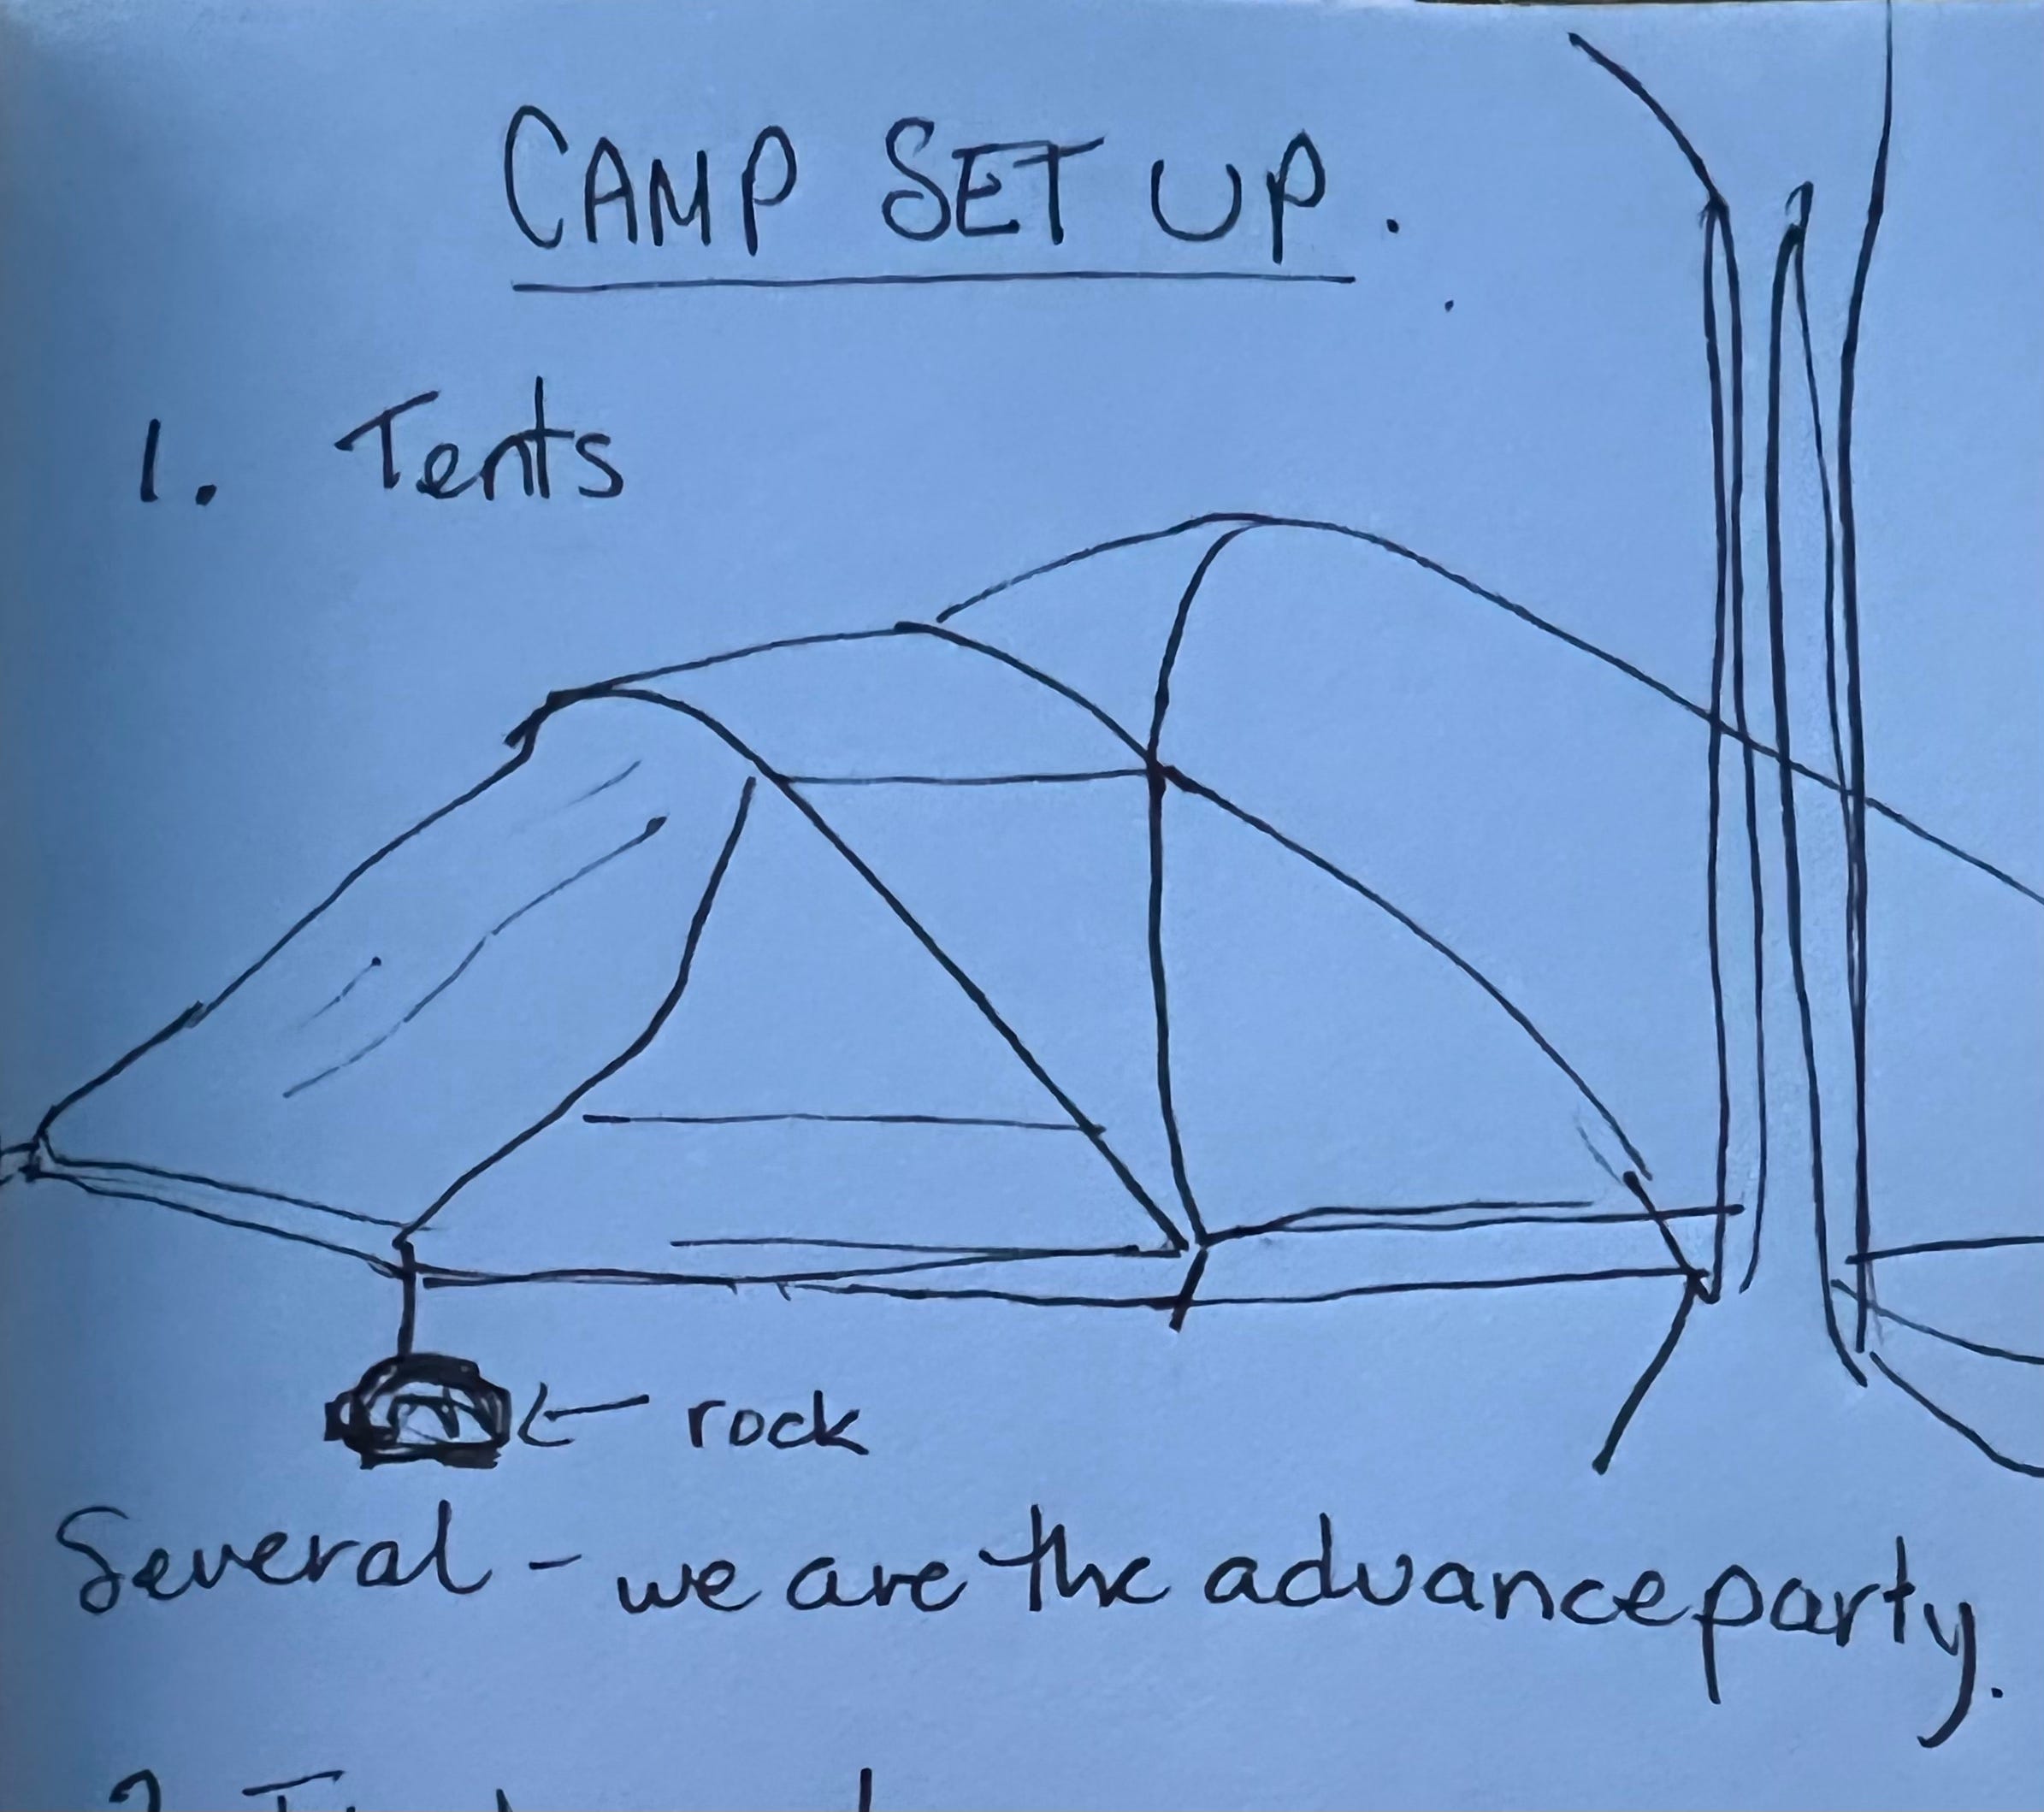 CAMP SET UP.
1. Tents
← rock
Several - we are the advance party.
2.